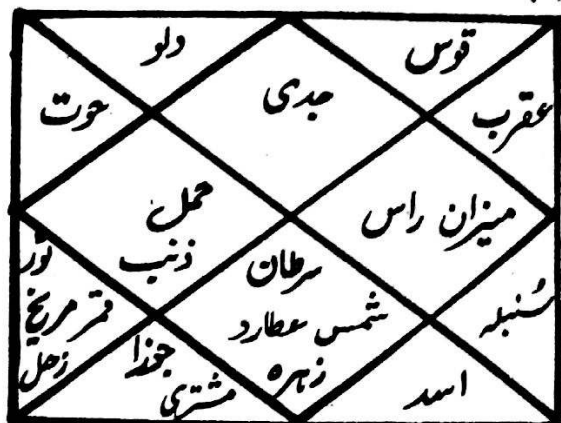 دلو
قوس
جدی
حوت
عقرب
حمل
ذنب
میزان راس
ثور
قمر مریخ
زحل
سرطان
شمس عطارد
زہرہ
سُنبلہ
جوزا
مشتری
اسد